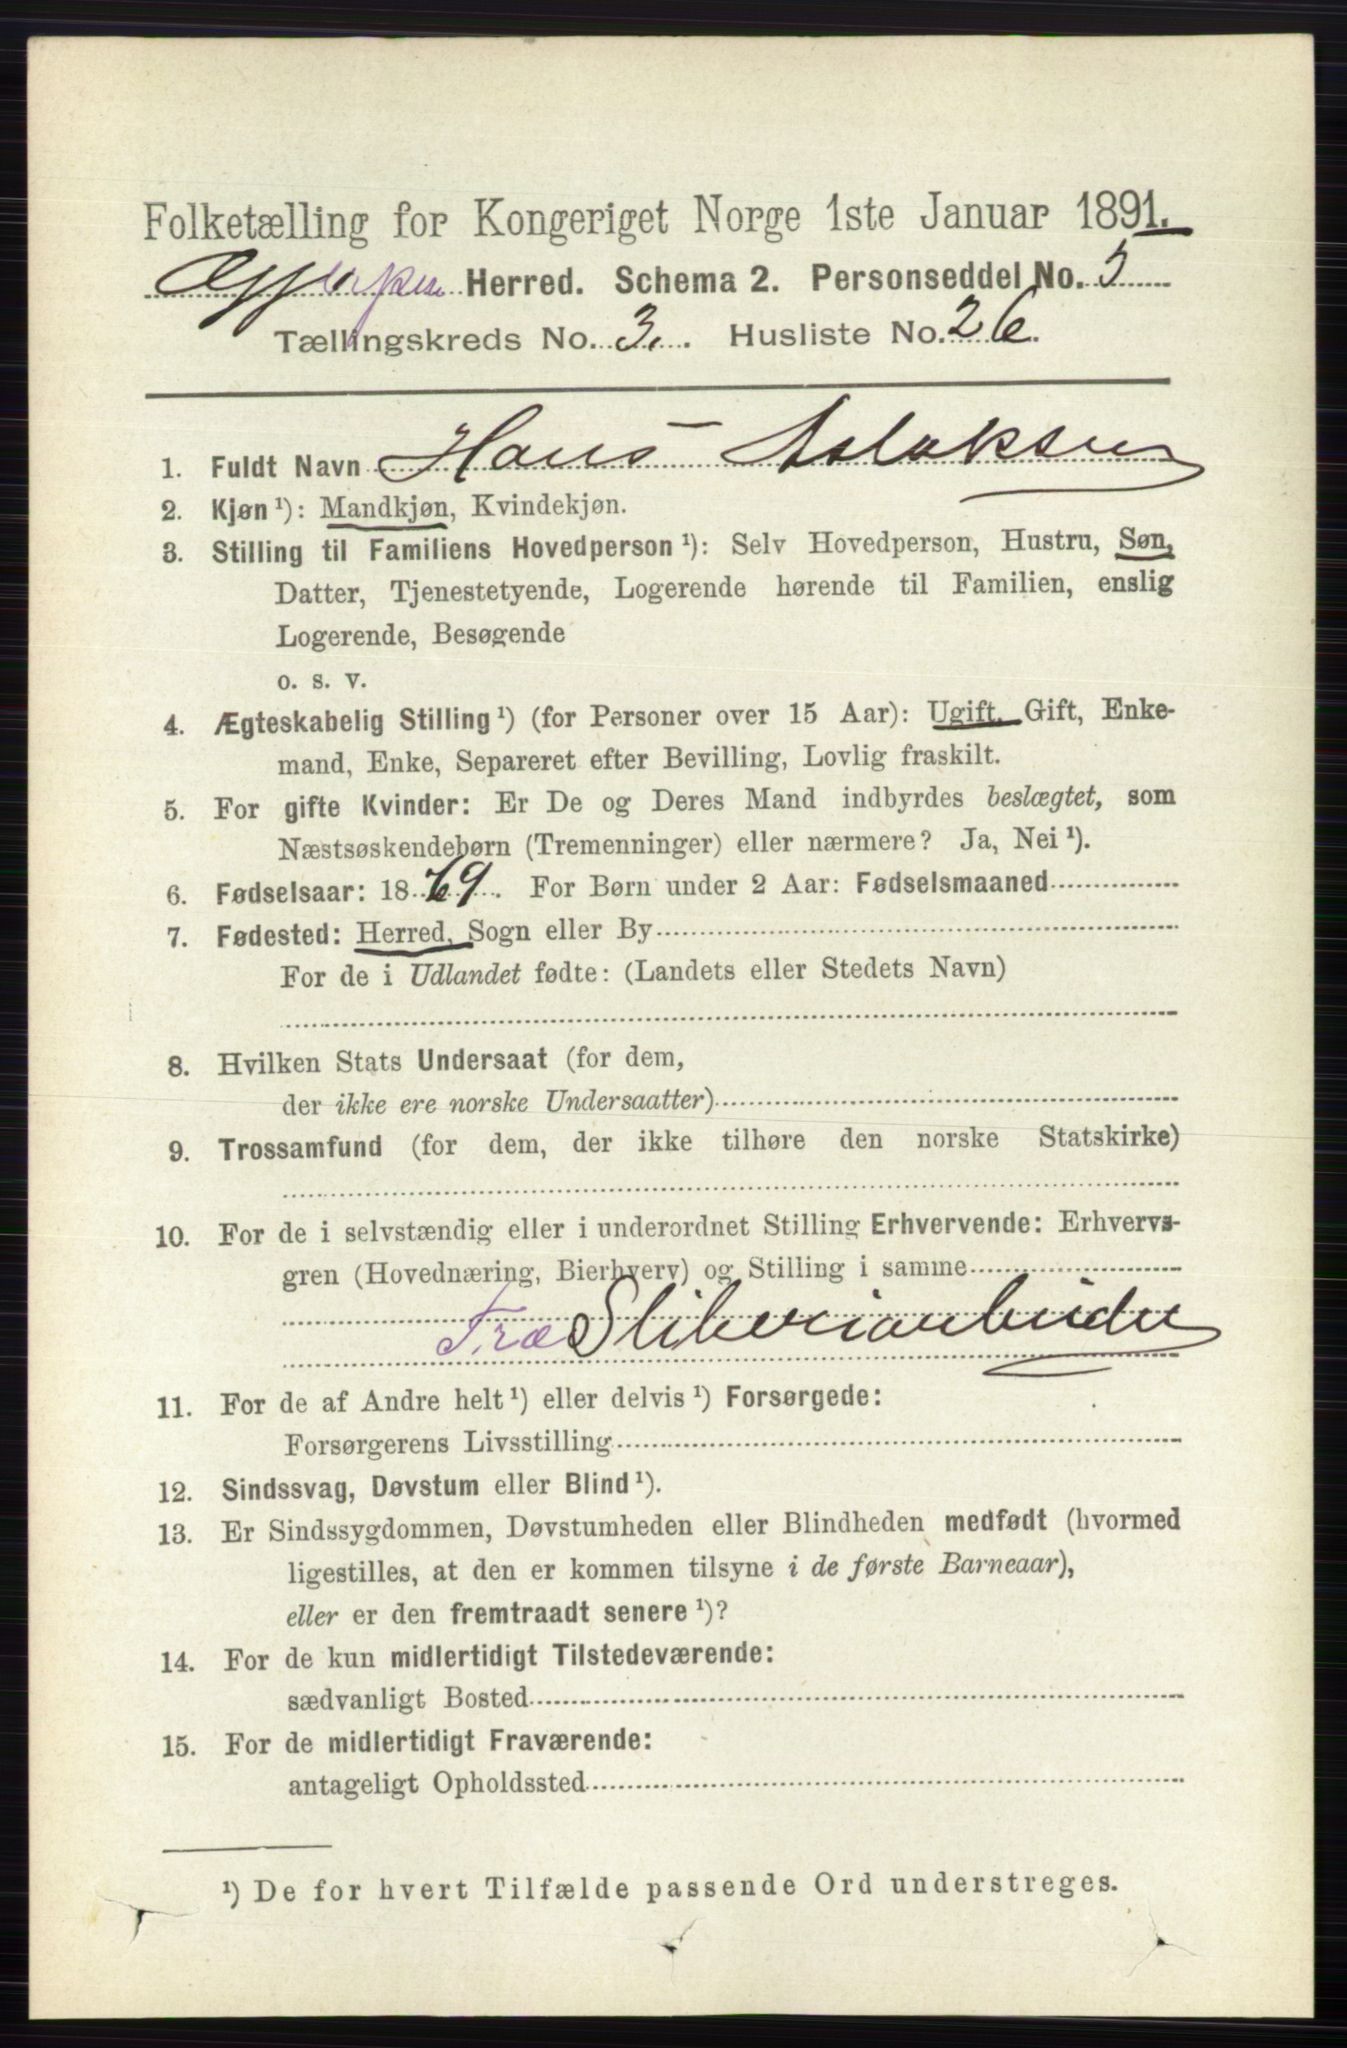 Folketælling for Kongeriget Norge 1ste Januar 1891.
Herred. Schema 2. Personseddel No. 5
Tællingskreds No. 3. Husliste No. 26.
1. Fuldt Navn Hans Aslaksen
2. Kjøn ¹): Mandkjøn, Kvindekjøn.
3. Stilling til Familiens Hovedperson ¹): Selv Hovedperson, Hustru, Søn,
Datter, Tjenestetyende, Logerende hørende til Familien, enslig
Logerende, Besøgende
o. s. v.
4. Ægteskabelig Stilling ¹) (for Personer over 15 Aar): Ugift, Gift, Enke-
mand, Enke, Separeret efter Bevilling, Lovlig fraskilt.
5. For gifte Kvinder: Er De og Deres Mand indbyrdes beslægtet, som
Næstsøskendebørn (Tremenninger) eller nærmere? Ja, Nei ¹).
6. Fødselsaar: 1869. For Børn under 2 Aar: Fødselsmaaned
7. Fødested: Herred, Sogn eller By
For de i Udlandet fødte: (Landets eller Stedets Navn)
8. Hvilken Stats Undersaat (for dem,
der ikke ere norske Undersaatter)
9. Trossamfund (for dem, der ikke tilhøre den norske Statskirke)
10. For de i selvstændig eller i underordnet Stilling Erhvervende: Erhvervs-
gren (Hovednæring, Bierhverv) og Stilling i samme
Træ Sliberiarbeider
11. For de af Andre helt ¹) eller delvis ¹) Forsørgede:
Forsørgerens Livsstilling
12. Sindssvag, Døvstum eller Blind ¹).
13. Er Sindssygdommen, Døvstumheden eller Blindheden medfødt (hvormed
ligestilles, at den er kommen tilsyne i de første Barneaar),
eller er den fremtraadt senere ¹)?
14. For de kun midlertidigt Tilstedeværende:
sædvanligt Bosted
15. For de midlertidigt Fraværende:
antageligt Opholdssted
¹) De for hvert Tilfælde passende Ord understreges.